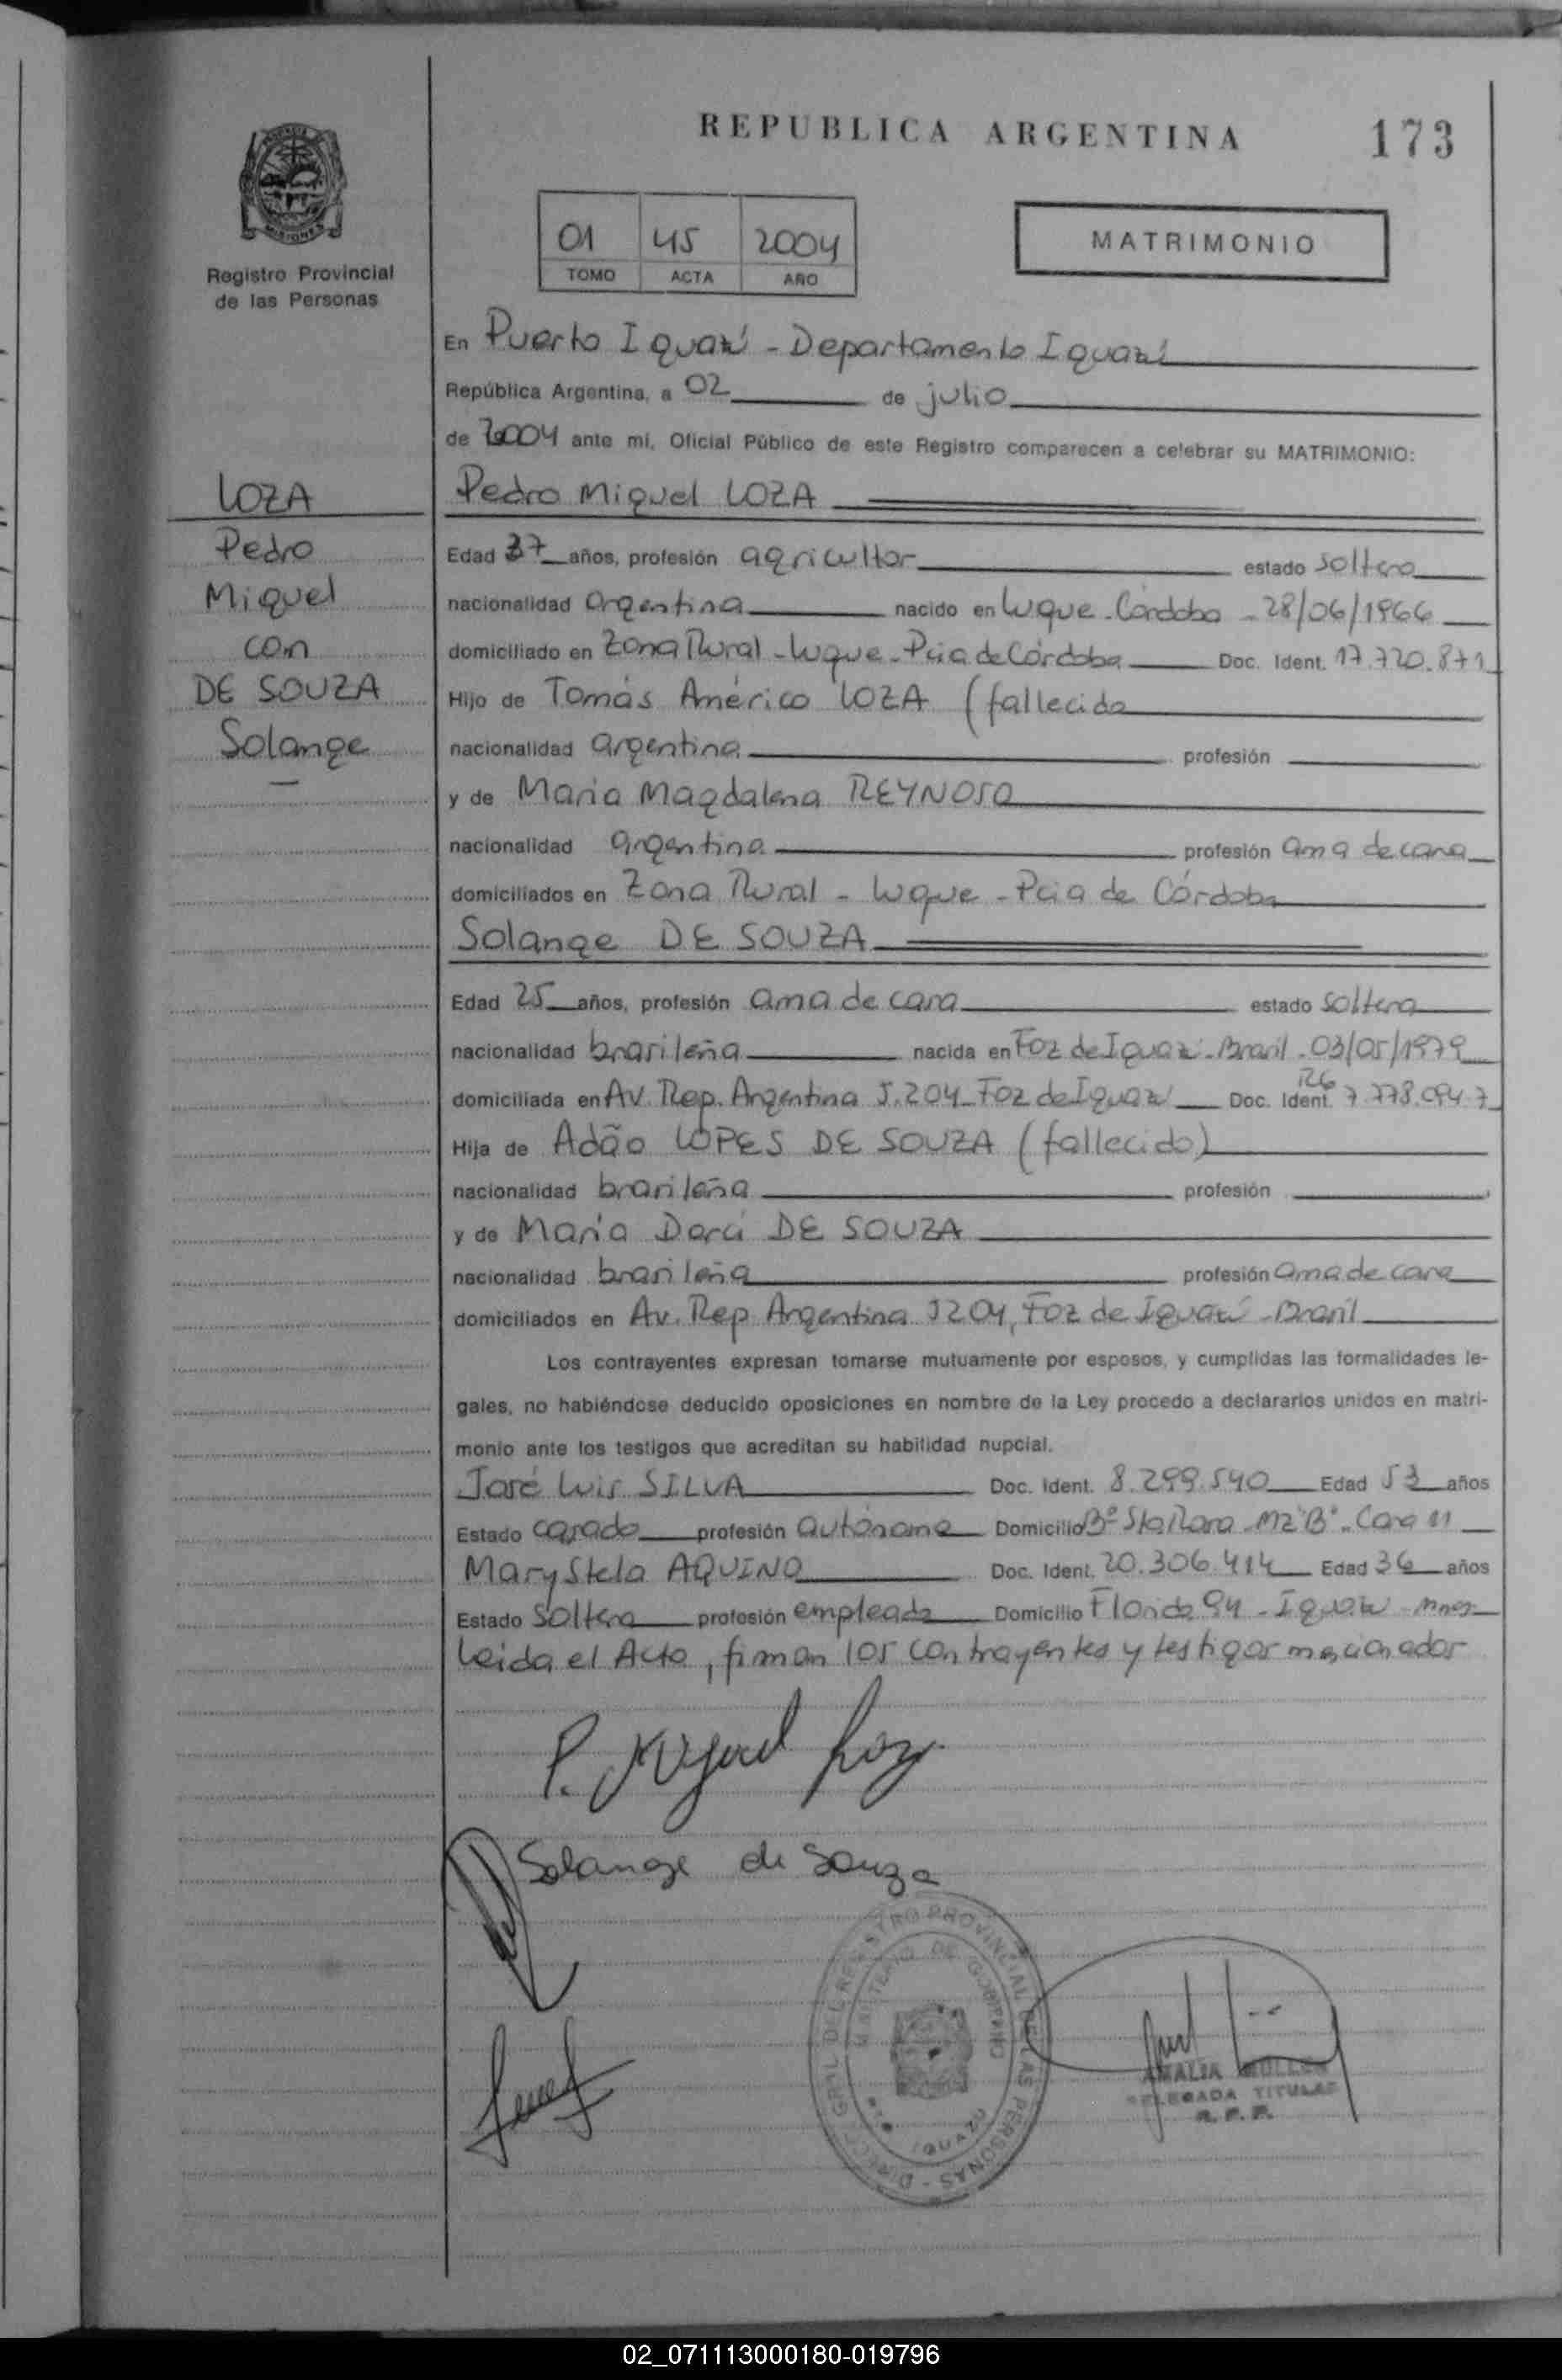 REPUBLICA ARGENTINA
173
MISIONES
Registro Provincial
de las Personas
01 45 2004
TOMO ACTA AÑO
MATRIMONIO
En Puerto Iguazú - Departamento Iguazú
República Argentina, a 02 de julio
de 2004 ante mi, Oficial Público de este Registro comparecen a celebrar su MATRIMONIO:
LOZA
Pedro
Miguel
con
DE SOUZA
Solange
Pedro Miguel LOZA
Edad 37 años, profesión agricultor estado soltero
nacionalidad argentina nacido en Luque - Córdoba - 28/06/1966
domiciliado en Zona Rural - Luque - Pcia de Córdoba Doc. Ident. 17.720.871
Hijo de Tomás Américo LOZA (fallecido
nacionalidad argentina profesión
y de Maria Magdalena REYNOSO
nacionalidad argentina profesión ama de casa
domiciliados en Zona Rural - Luque - Pcia de Córdoba
Solange DE SOUZA
Edad 25 años, profesión ama de casa estado soltera
nacionalidad brasileña nacida en Foz de Iguazú - Brasil - 03/05/1979
domiciliada en Av. Rep. Argentina 5.204 - Foz de Iguazú Doc. Ident. RG 7.778.094-7
Hija de Adão LOPES DE SOUZA (fallecido)
nacionalidad brasileña profesión
y de Maria Dorci DE SOUZA
nacionalidad brasileña profesión ama de casa
domiciliados en Av. Rep Argentina 5204, Foz de Iguazú - Brasil
Los contrayentes expresan tomarse mutuamente por esposos, y cumplidas las formalidades le-
gales, no habiéndose deducido oposiciones en nombre de la Ley procedo a declararlos unidos en matri-
monio ante los testigos que acreditan su habilidad nupcial.
José Luis SILVA Doc. Ident. 8.299.540 Edad 53 años
Estado casado profesión autónomo Domicilio Bº Sta Rosa - Mz "B" - Casa 11
Mary Stela AQUINO Doc. Ident. 20.306.414 Edad 36 años
Estado soltera profesión empleada Domicilio Florida 94 - Iguazú - Mnes
Leida el Acta, firman los contrayentes y testigos mencionados
P. Miguel Loza
Solange de Souza
DIRECC. GRAL. DEL REGISTRO PROVINCIAL DE LAS PERSONAS
MINISTERIO DE GOBIERNO
PTO. IGUAZU
AMALIA
DELEGADA TITULAR
R. P. P.
02_071113000180-019796